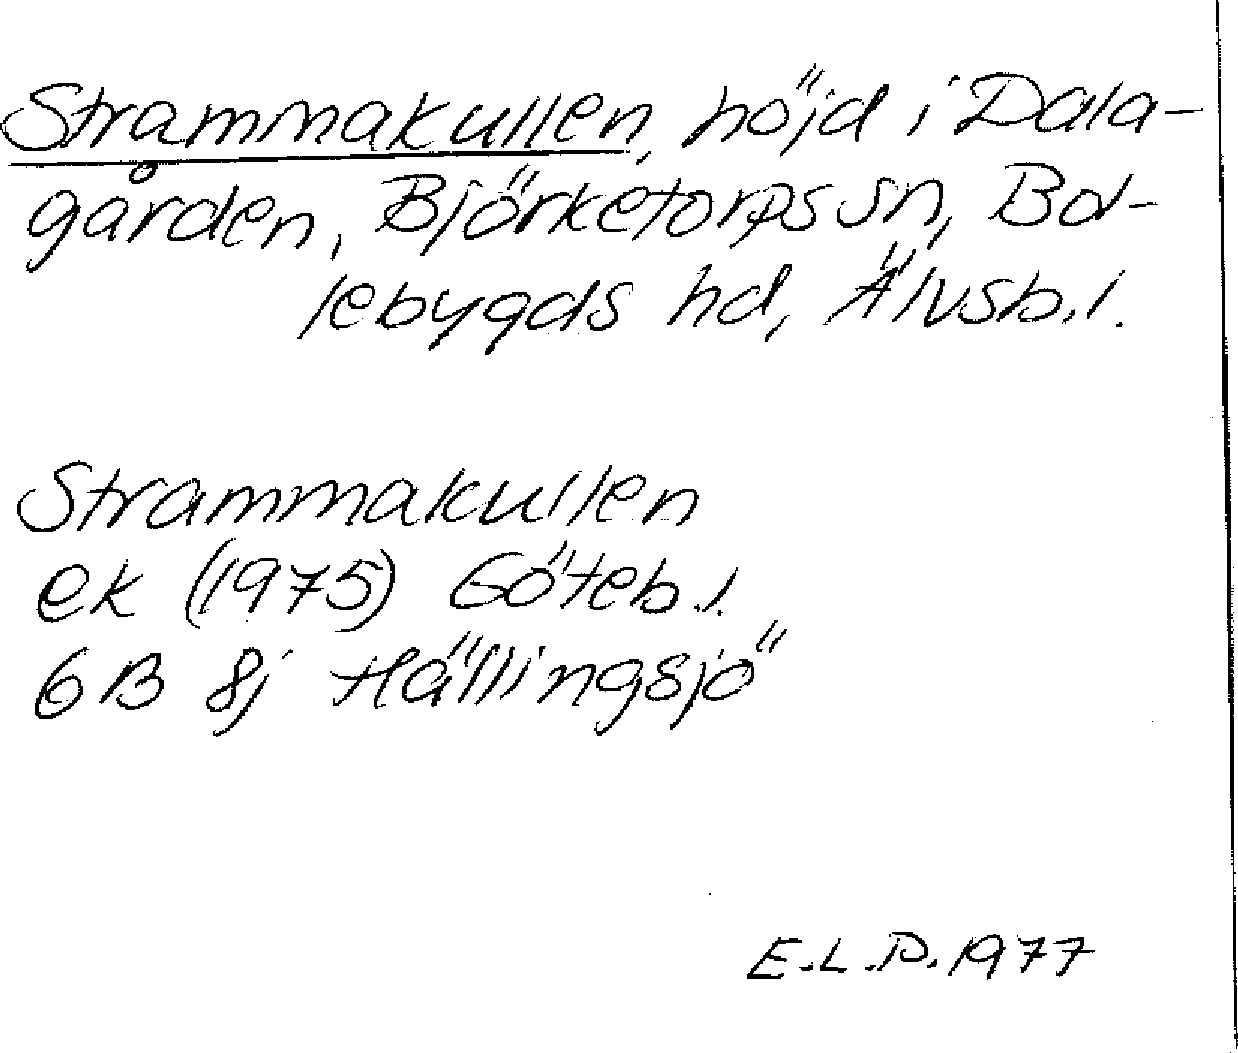 Strammakullen, höjd i Dala-
gården, Björketorps sn, Bol-
lebygds hd, Älvsb.l.
Strammakullen
ek (1975) Göteb.l.
6B 8j Hällingsjö
E.L.P. 1977